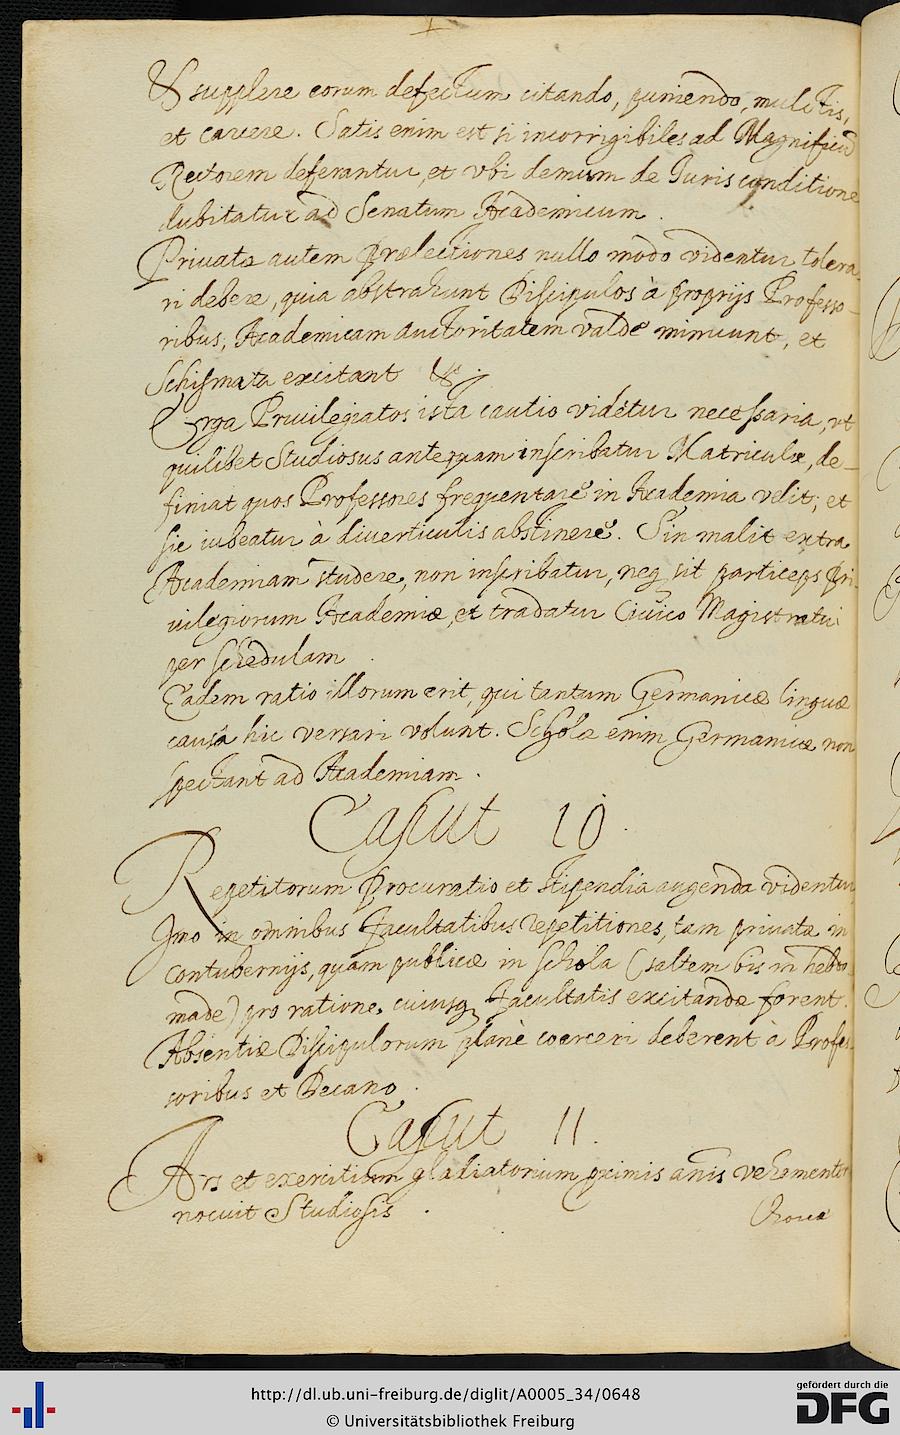 & supplere eorum defectum citando, puniendo, mulctis,
et carcere. Satis enim est si incorrigibiles ad Magnificū
Rectorem deferantur, et vbi demum de Iuris conditione
dubitatur ad Senatum Academicum.
Priuatæ autem prælectiones nullo modo videntur tolera-
ri debere, quia abstrahunt Discipulos à proprijs Professo-
ribus, Academicam auctoritatem valdè minuunt, et
Schismata excitant &c.
Erga Priuilegiatos ista cautio vidétur necessaria, vt
quilibet Studiosus antequam inscribatur Matriculæ, de-
finiat quos Professores frequentare in Academia velit; et
sic iubeatur à diuerticulis abstinere. Sin malit extra
Academiam studere, non inscribatur, neq sit particeps Pri-
uilegiorum Academiæ, et tradatur Ciuico Magistratui
per schedulam
Eadem ratio illorum erit, qui tantum Germanicæ linguæ
causa hic versari volunt. Scholæ enim Germanicæ non
spectant ad Academiam.
Caput 10.
Repetitorum Procuratio et stipendia augenda videntur
Imo in omnibus Facultatibus repetitiones, tam priuatæ in
contubernijs, quàm publicæ in schola (saltem bis in hebdo
made) pro ratione cuiusq Facultatis excitandæ forent.
Absentiæ Discipulorum planè coerceri deberent à Profes-
soribus et Decano.
Caput 11.
Ars et exercitium gladiatorium primis annis vehementer
nocuit Studiosis.
http://dl.ub.uni-freiburg.de/diglit/A0005_34/0648
© Universitätsbibliothek Freiburg
gefördert durch die
DFG